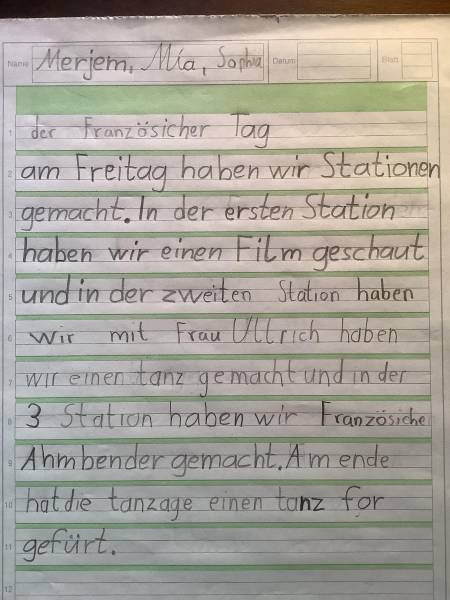 Name Merjem, Mia, Sophia Datum Blatt
1 der Französicher Tag
2 am Freitag haben wir Stationen
3 gemacht. In der ersten Station
4 haben wir einen Film geschaut
5 und in der zweiten Station haben
6 wir mit Frau Ullrich haben
7 wir einen tanz gemacht und in der
8 3 Station haben wir Französiche
9 Ahmbender gemacht. Am ende
10 hat die tanzage einen tanz for
11 gefürt.
12